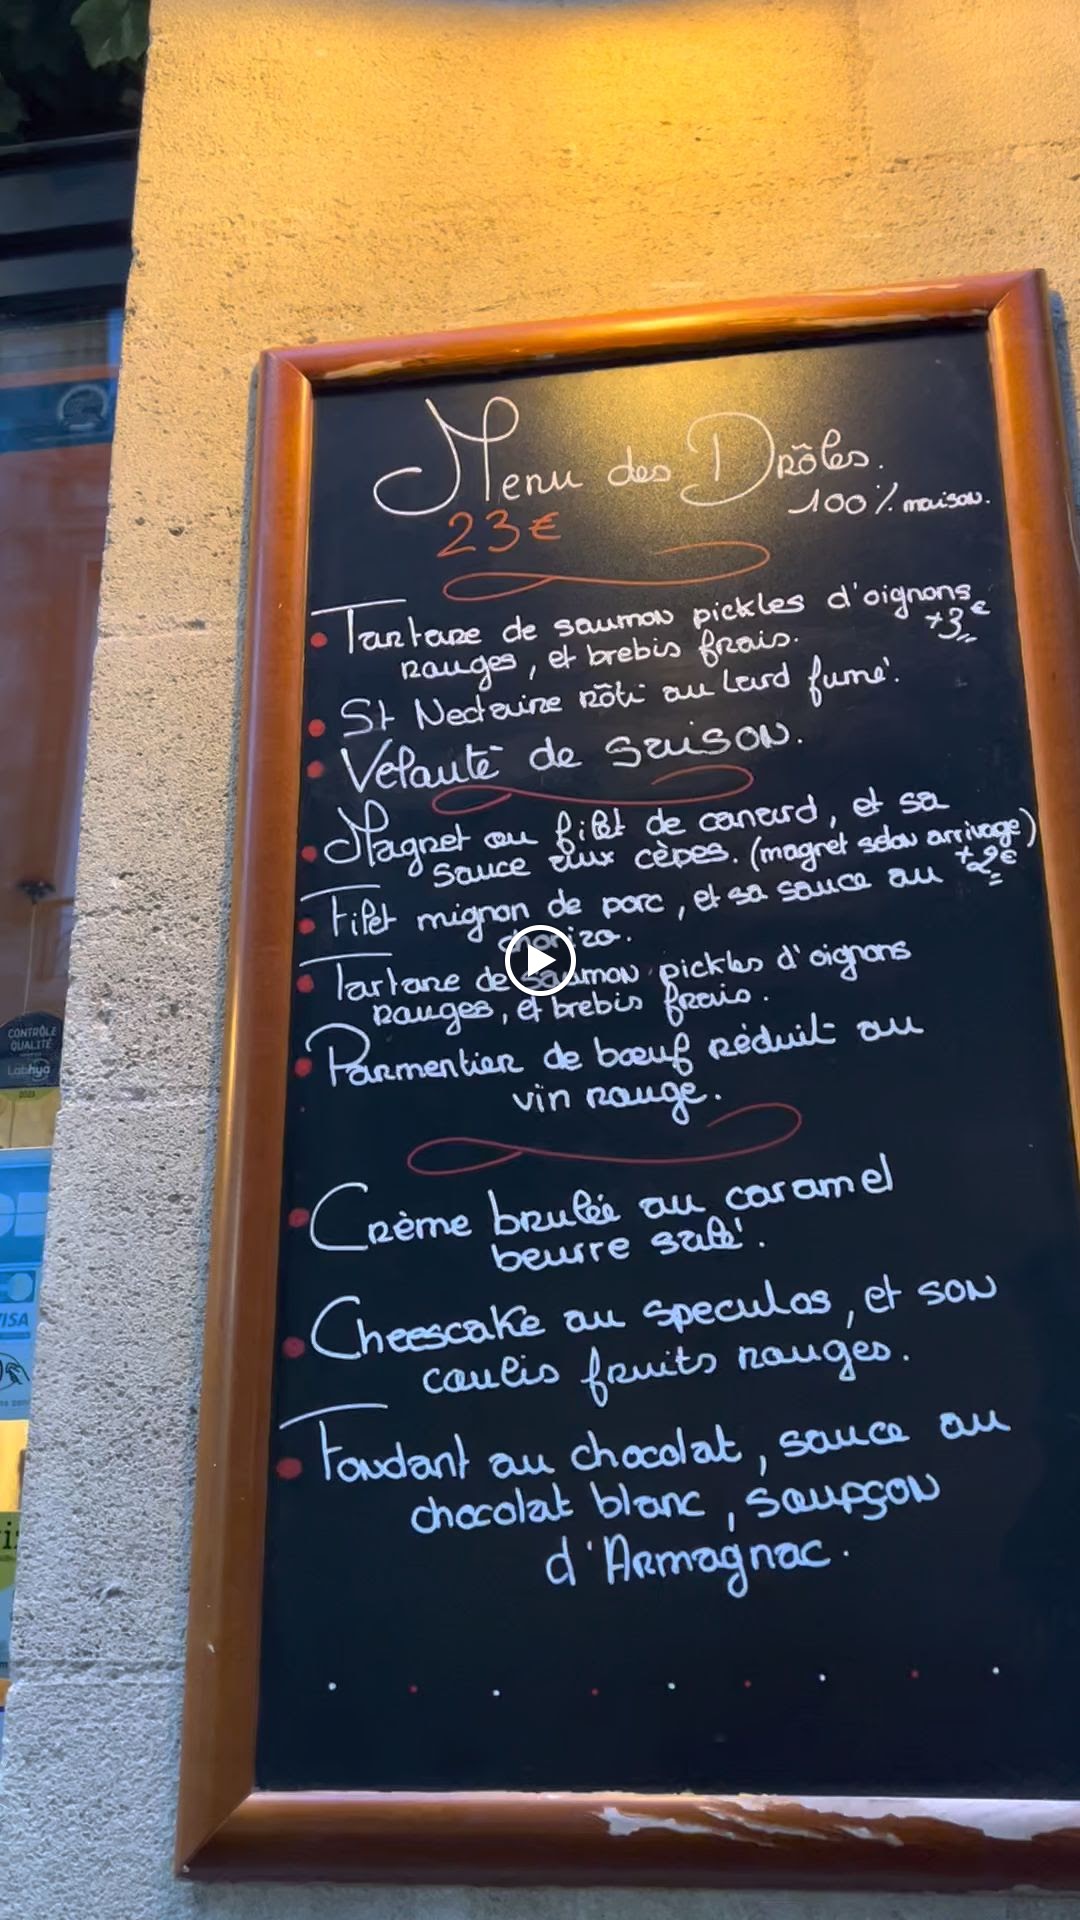 CONTRÔLE
QUALITÉ
Labhya
2021
VISA
Menu des Drôles.
23€
100% maison.
• Tartare de saumon pickles d'oignons
+3€
rouges, et brebis frais.
• St Nectaire rôti au lard fumé.
• Velouté de saison.
• Magret ou filet de canard, et sa
sauce aux cèpes. (magret selon arrivage)
+2€
• Filet mignon de porc, et sa sauce au
chorizo.
• Tartare de saumon pickles d'oignons
rouges, et brebis frais.
• Parmentier de bœuf réduit au
vin rouge.
• Crème brulée au caramel
beurre salé.
• Cheescake au speculos, et son
coulis fruits rouges.
• Fondant au chocolat, sauce au
chocolat blanc, soupçon
d'Armagnac.